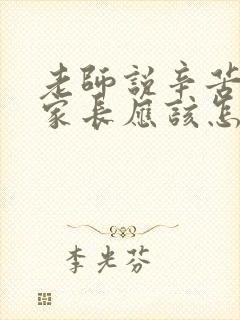 老師說辛苦
家長應該怎
李光芬